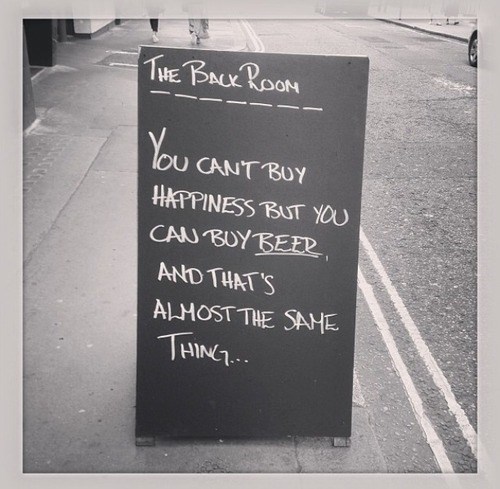 THE BACK ROOM
YOU CANT BUY
HAPPINESS BUT YOU
CAN BUY BEER,
AND THAT'S
ALMOST THE SAME
THING...